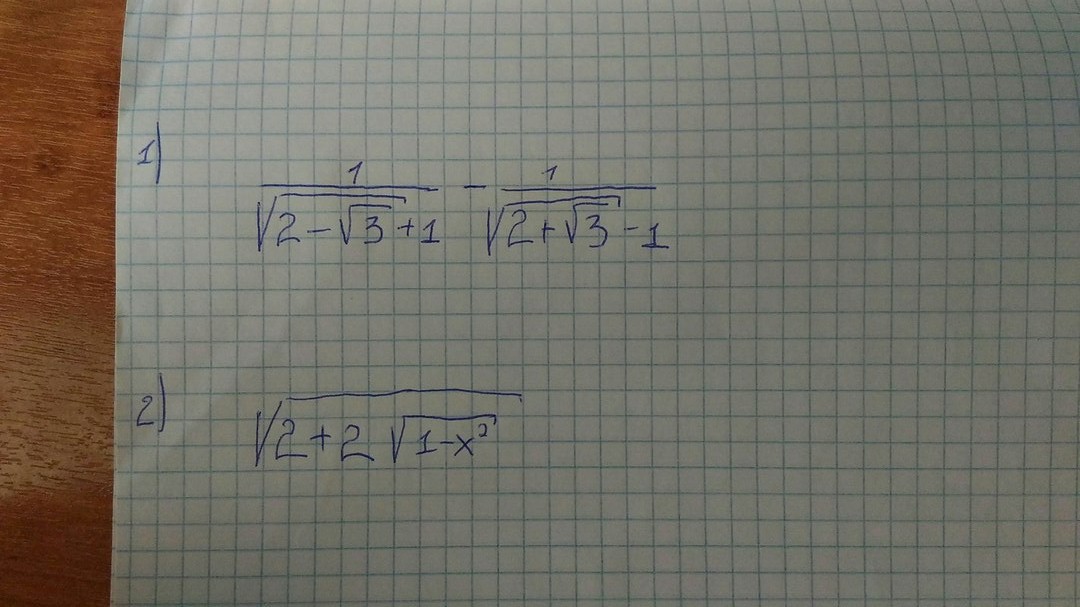 1) \frac{1}{\sqrt{2-\sqrt{3}}+1} - \frac{1}{\sqrt{2+\sqrt{3}}-1}
2) \sqrt{2+2\sqrt{1-x^2}}